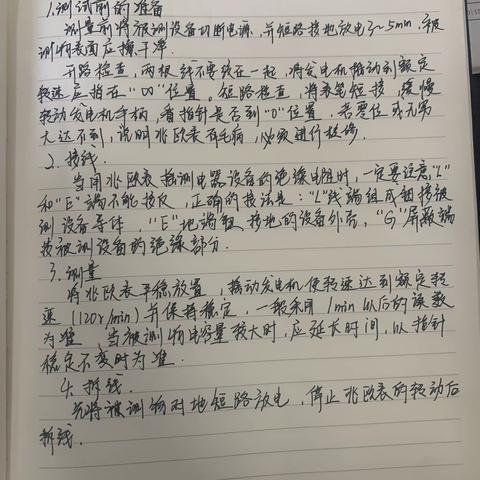 1.测试前的准备
测量前将被测设备切断电源,并短路接地放电3~5min,被
测物表面应擦干净.
开路检查,两根线不要绞在一起,将发电机摇动到额定
转速应指在"∞"位置。短路检查,将表笔短接,缓慢
转动发电机手柄,看指针是否到"0"位置,若零位或无穷
大达不到,说明兆欧表有毛病,必须进行检修.
2.接线.
当用兆欧表摇测电器设备的绝缘电阻时,一定要注意"L"
和"E"端不能接反,正确的接法是:"L"线端钮接被
测设备导体,"E"地端钮接地的设备外壳,"G"屏蔽端
接被测设备的绝缘部分.
3.测量
将兆欧表平稳放置,摇动发电机使转速达到额定转
速(120r/min)并保持稳定,一般采用1min以后的读数
为准,当被测物电容量较大时,应延长时间,以指针
稳定不变时为准.
4.拆线.
先将被测物对地短路放电,停止兆欧表的转动后
拆线.